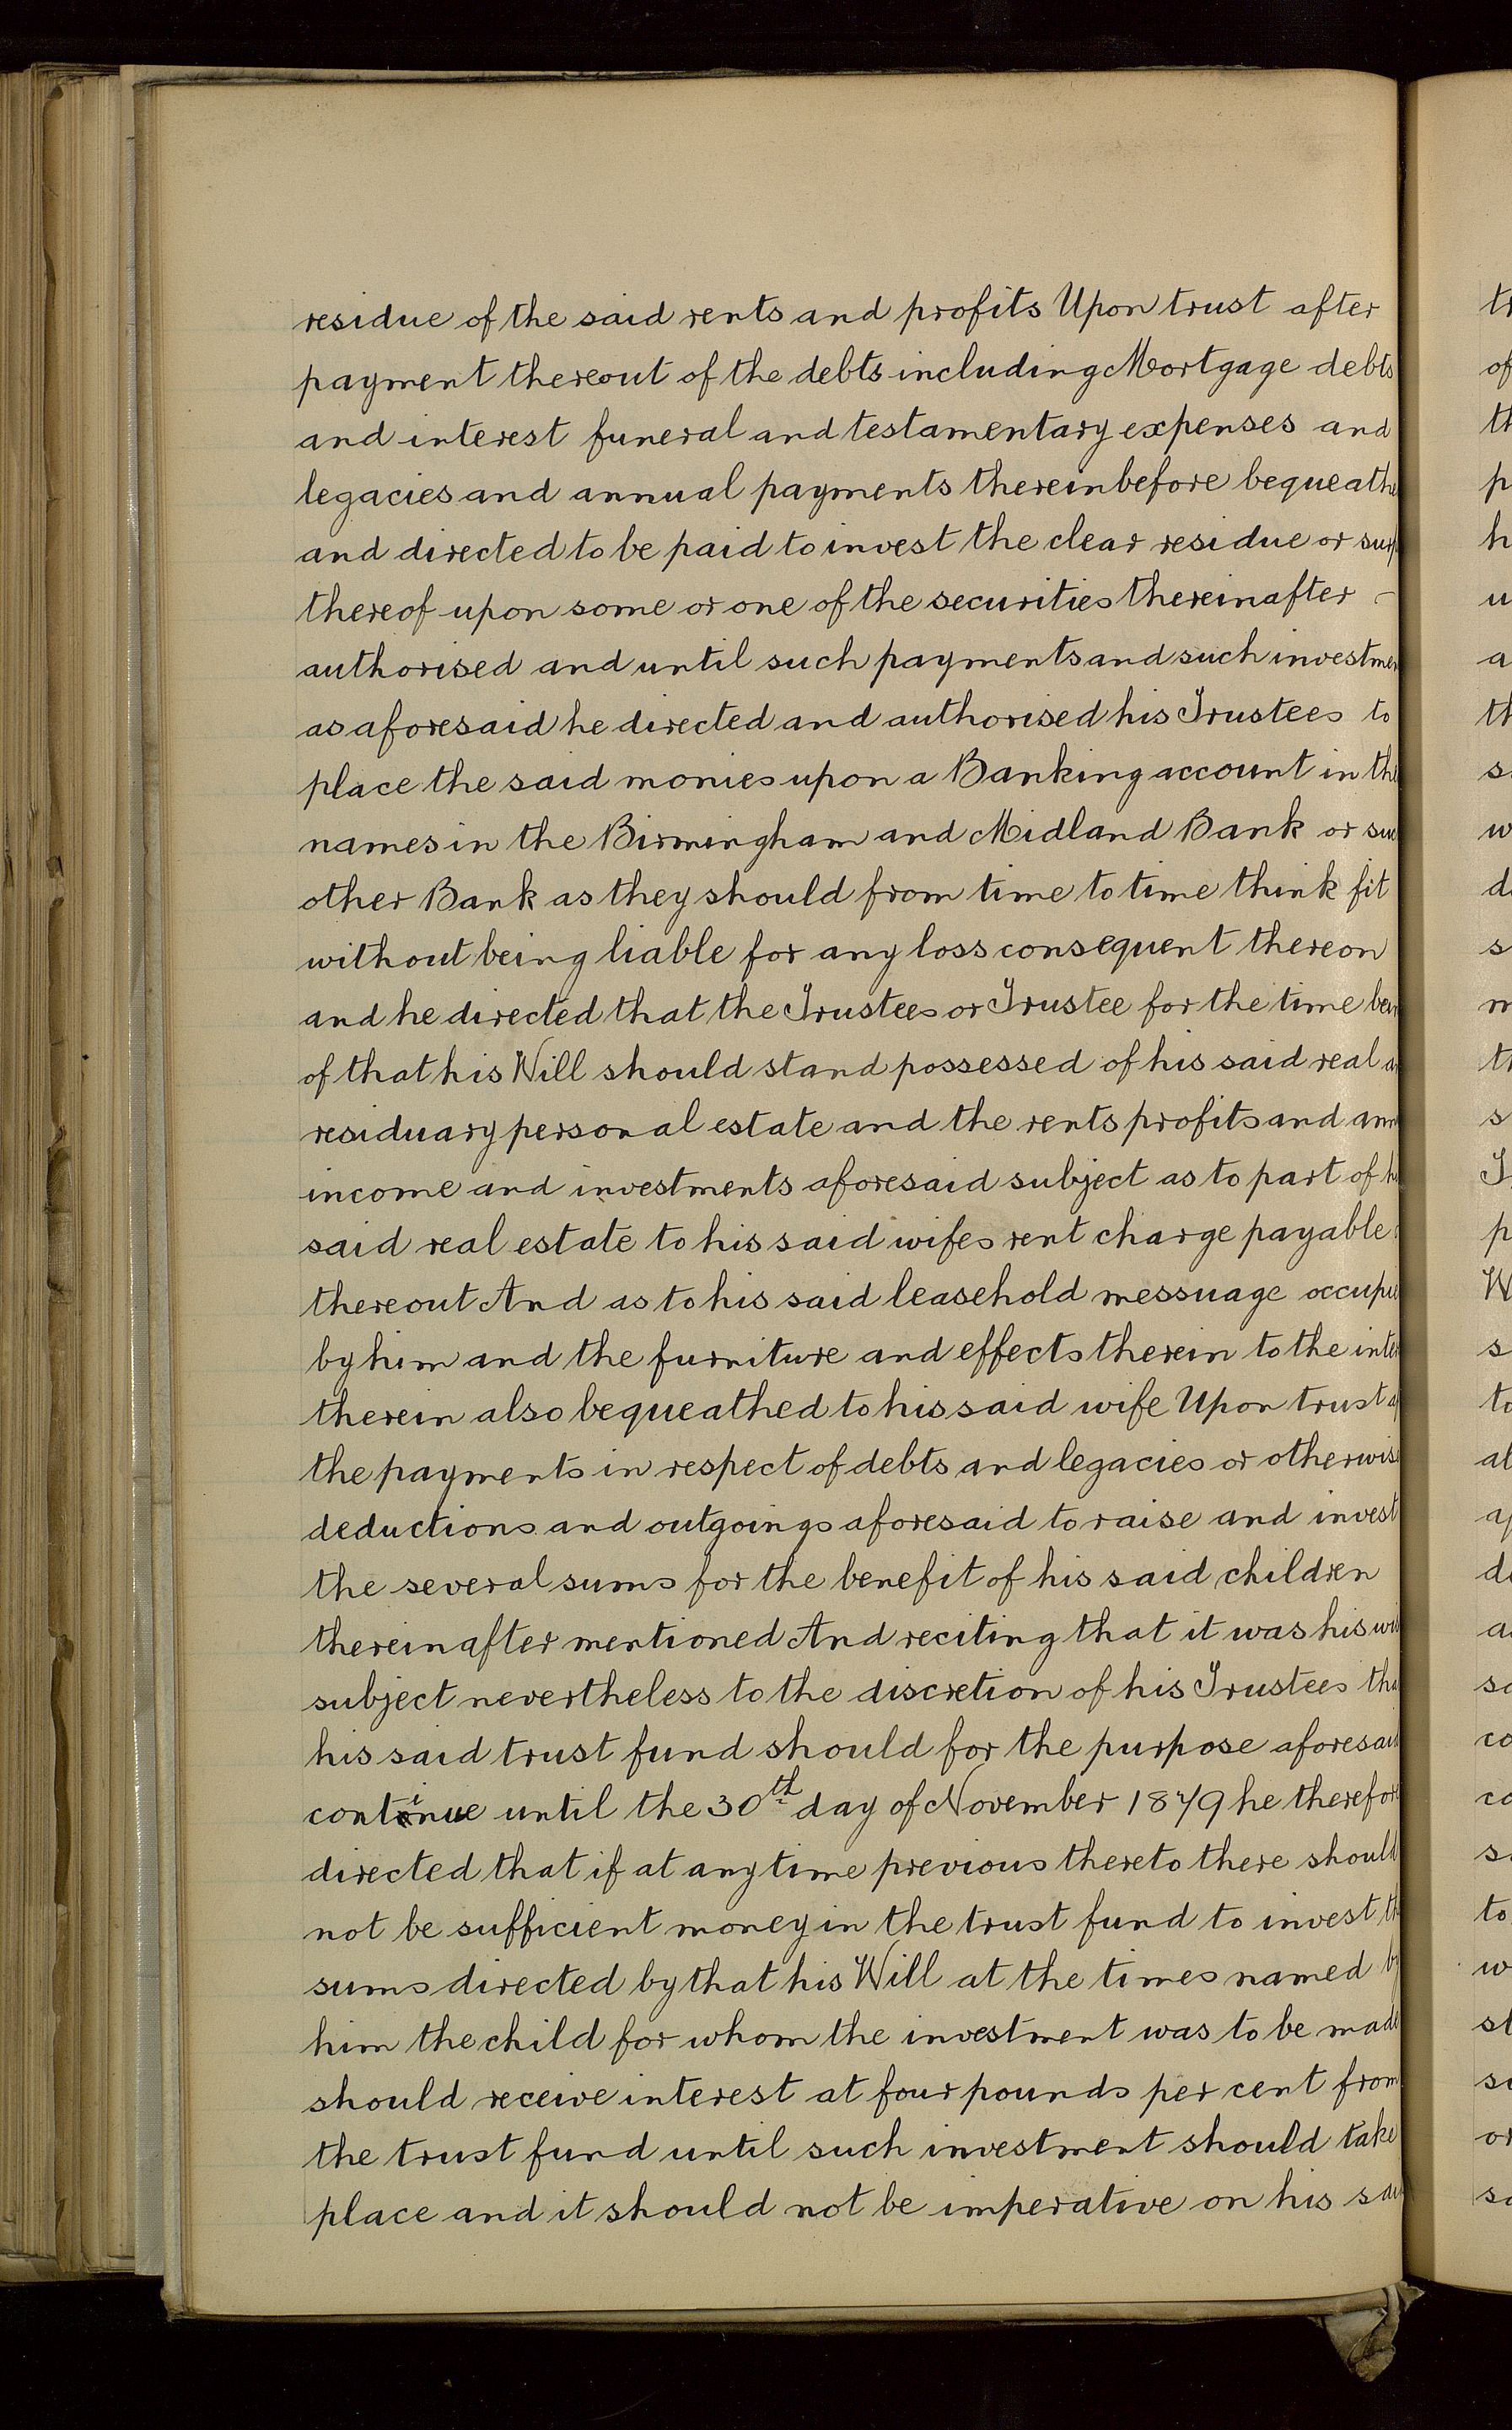 residue of the said rents and profits Upon trust after
payment thereout of the debts including Mortgage debts
and interest funeral and testamentary expenses and
legacies and annual payments thereinbefore bequeathe
and directed to be paid to invest the clear residue or surp
thereof upon some or one of the securities thereinafter -
authorised and until such payments and such investmen
as aforesaid he directed and authorised his Trustees to
place the said monies upon a Banking account in the
names in the Birmingham and Midland Bank or suc
other Bank as they should from time to time think fit
without being liable for any loss consequent thereon
and he directed that the Trustees or Trustee for the time bein
of that his Will should stand possessed of his said real a
residuary personal estate and the rents profits and ann
income and investments aforesaid subject as to part of h
said real estate to his said wifes rent charge payable
thereout And as to his said leasehold messuage occupie
by him and the furniture and effects therein to the inte
therein also bequeathed to his said wife Upon trust af
the payments in respect of debts and legacies or otherwise
deductions and outgoings aforesaid to raise and invest
the several sums for the benefit of his said children
thereinafter mentioned And reciting that it was his wi
subject nevertheless to the discretion of his Trustees tha
his said trust fund should for the purpose aforesaid
continue until the 30th day of November 1879 he therefore
directed that if at any time previous thereto there should
not be sufficient money in the trust fund to invest th
sums directed by that his Will at the times named by
him the child for whom the investment was to be made
should receive interest at four pounds per cent from
the trust fund until such investment should take
place and it should not be imperative on his sai